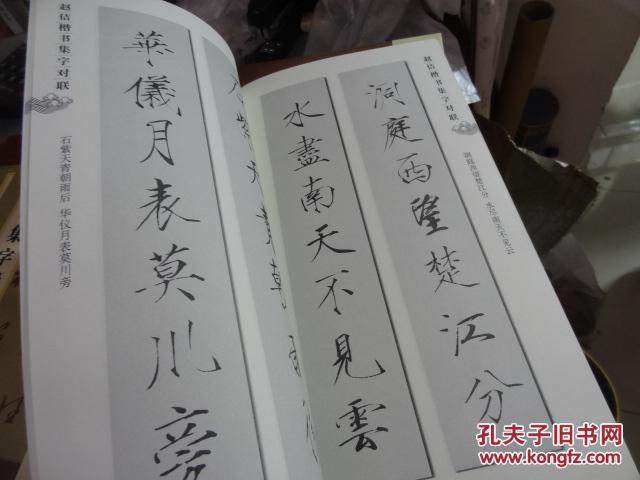 赵佶楷书集字对联
洞庭西望楚江分 水尽南天不见云
洞庭西望楚江分
水盡南天不見雲
赵佶楷书集字对联
石紫天青朝雨后 华仪月表莫川旁
華儀月表莫川旁
集字
孔夫子旧书网
www.kongfz.com